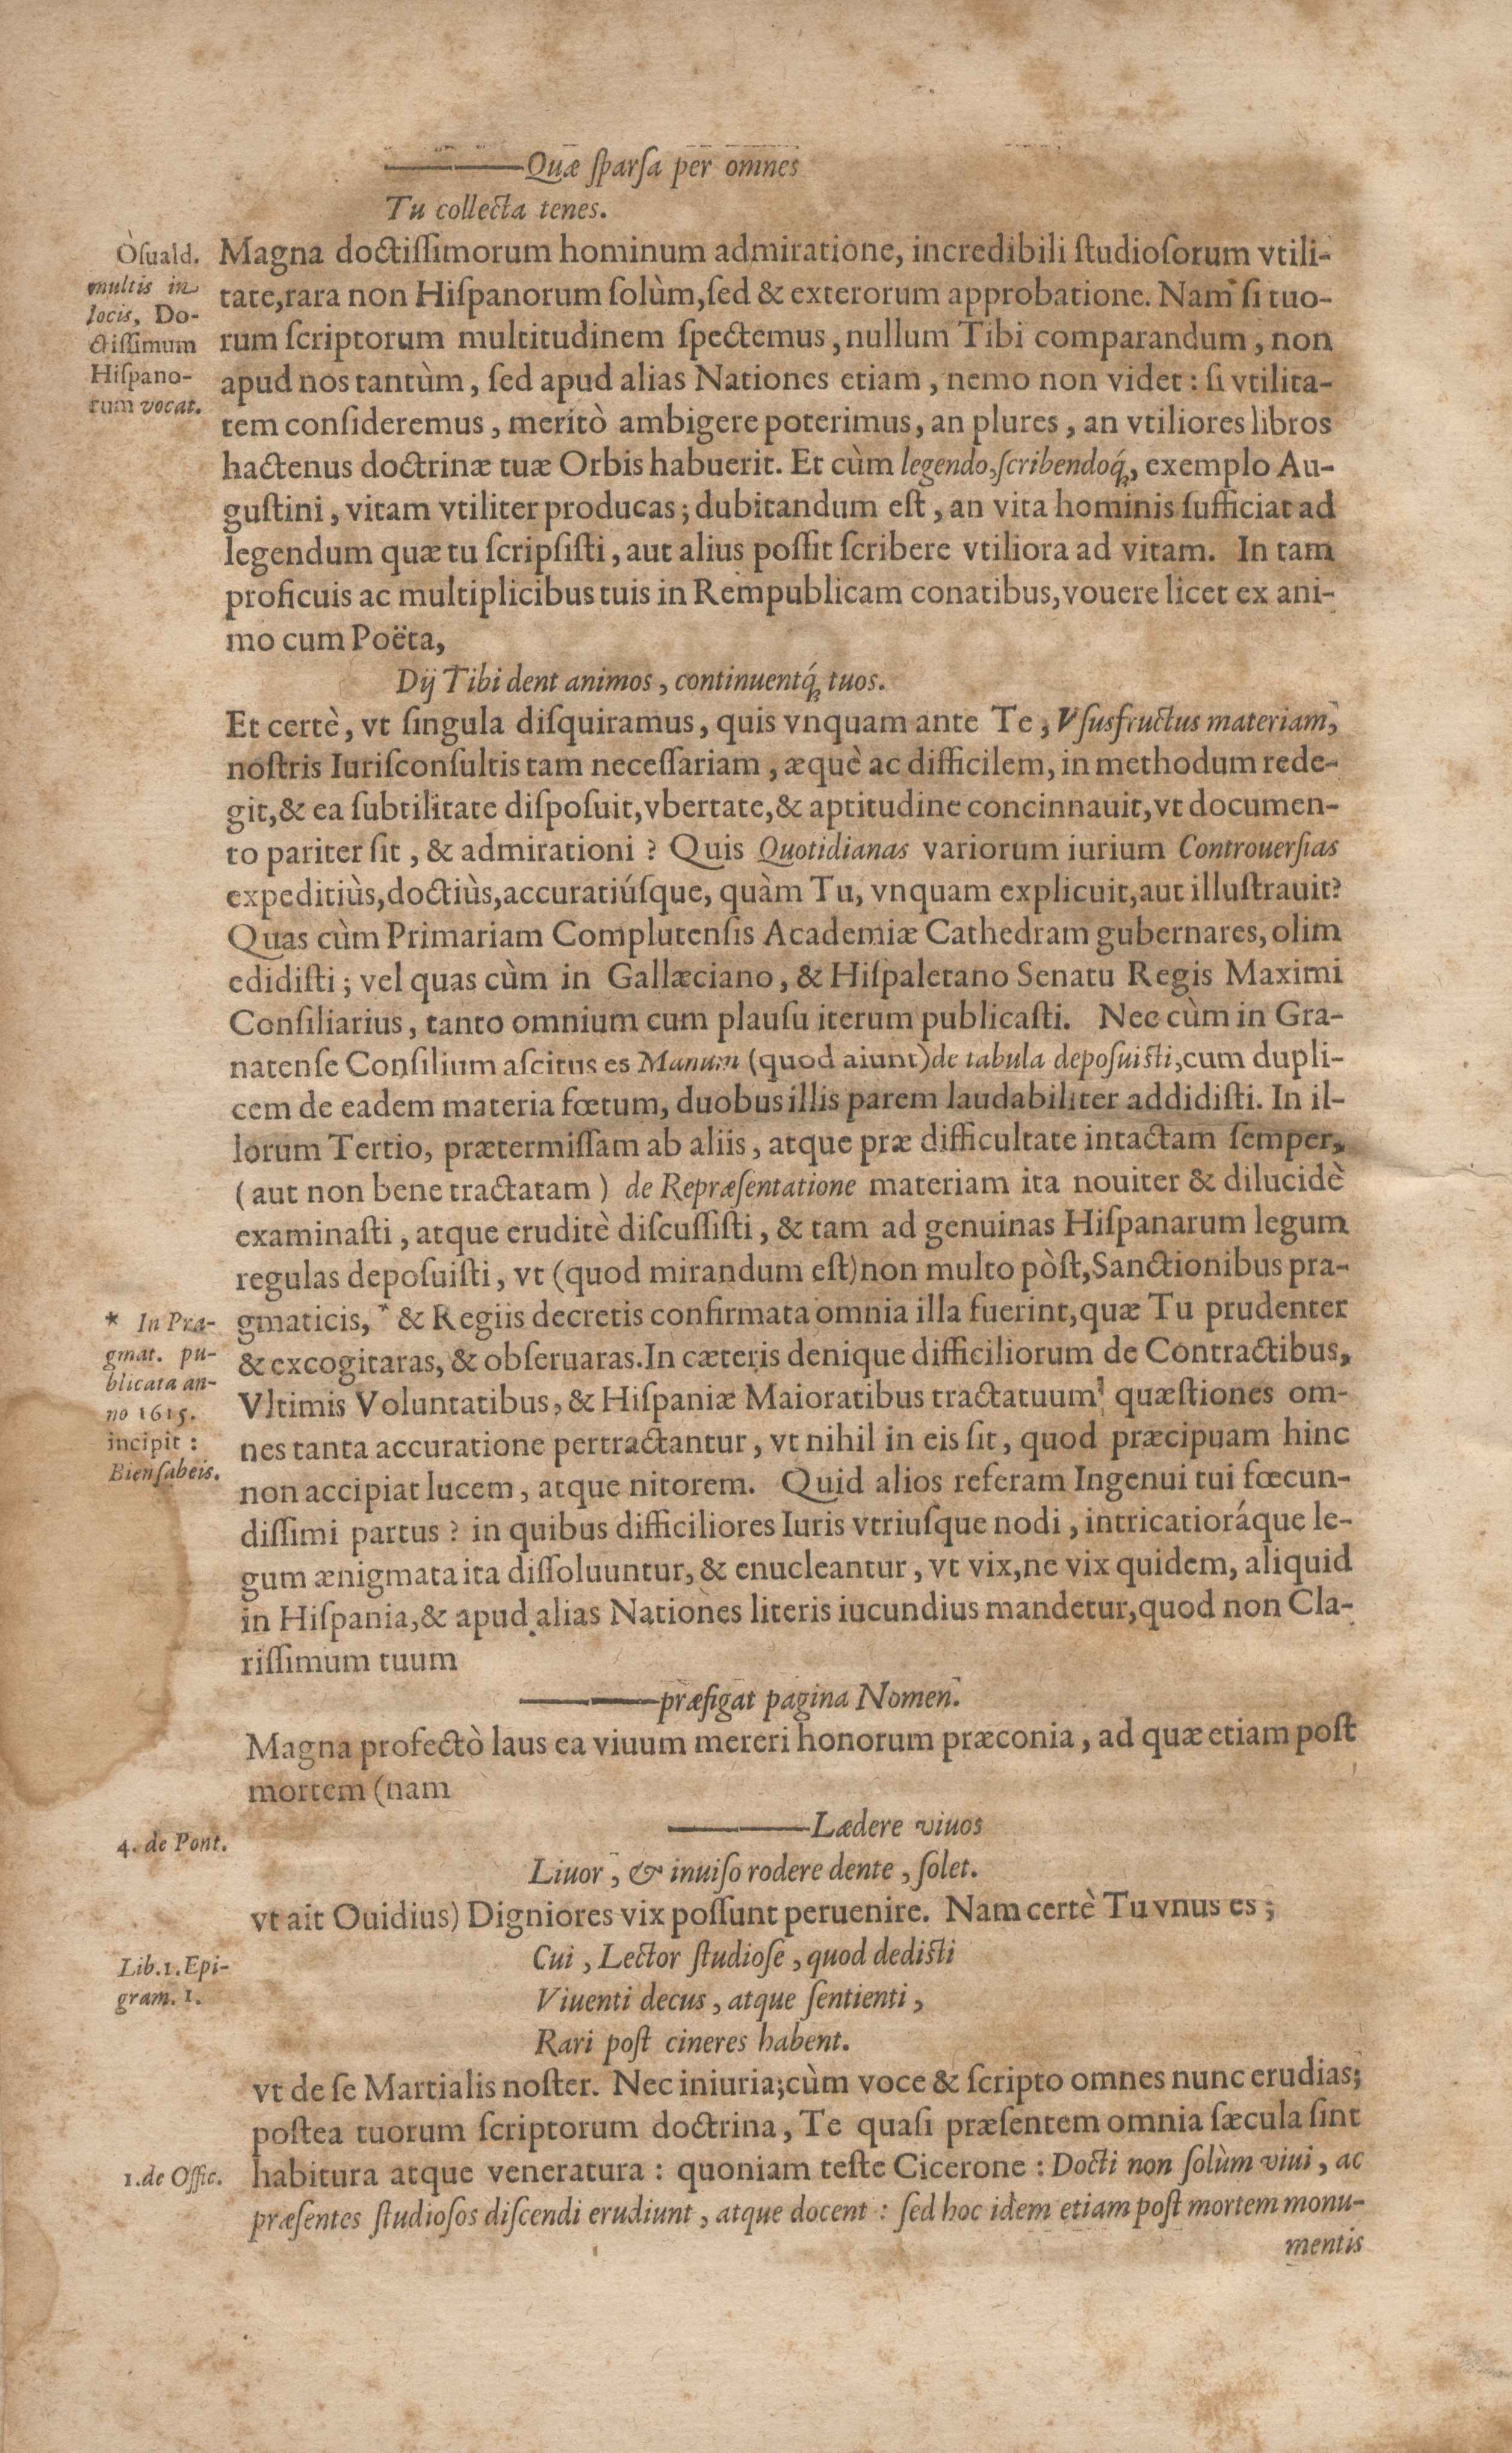 ———Quæ ſparſa per omnes
Tu collecta tenes.
Oſuald.
multis in
locis, Do-
ctiſſimum
Hiſpano-
rum vocat.
Magna doctiſſimorum hominum admiratione, incredibili ſtudioſorum vtili-
tate, rara non Hiſpanorum ſolùm, ſed & exterorum approbatione. Nam ſi tuo-
rum ſcriptorum multitudinem ſpectemus, nullum Tibi comparandum, non
apud nos tantùm, ſed apud alias Nationes etiam, nemo non videt: ſi vtilita-
tem conſideremus, meritò ambigere poterimus, an plures, an vtiliores libros
hactenus doctrinæ tuæ Orbis habuerit. Et cùm legendo, ſcribendoq́;, exemplo Au-
guſtini, vitam vtiliter producas; dubitandum eſt, an vita hominis ſufficiat ad
legendum quæ tu ſcripſiſti, aut alius poſſit ſcribere vtiliora ad vitam. In tam
proficuis ac multiplicibus tuis in Rempublicam conatibus, vouere licet ex ani-
mo cum Poëta,
Dij Tibi dent animos, continuentq́; tuos.
Et certè, vt ſingula diſquiramus, quis vnquam ante Te, Vſusfructus materiam,
noſtris Iuriſconſultis tam neceſſariam, æquè ac difficilem, in methodum rede-
git, & ea ſubtilitate diſpoſuit, vbertate, & aptitudine concinnauit, vt documen-
to pariter ſit, & admirationi? Quis Quotidianas variorum iurium Controuerſias
expeditiùs, doctiùs, accuratiúſque, quàm Tu, vnquam explicuit, aut illuſtrauit?
Quas cùm Primariam Complutenſis Academiæ Cathedram gubernares, olim
edidiſti; vel quas cùm in Gallæciano, & Hiſpaletano Senatu Regis Maximi
Conſiliarius, tanto omnium cum plauſu iterum publicaſti. Nec cùm in Gra-
natenſe Conſilium aſcitus es Manum (quod aiunt) de tabula depoſuiſti, cum dupli-
cem de eadem materia fœtum, duobus illis parem laudabiliter addidiſti. In il-
lorum Tertio, prætermiſſam ab aliis, atque præ difficultate intactam ſemper,
(aut non bene tractatam) de Repræſentatione materiam ita nouiter & dilucidè
examinaſti, atque eruditè diſcuſſiſti, & tam ad genuinas Hiſpanarum legum
regulas depoſuiſti, vt (quod mirandum eſt) non multo pòſt, Sanctionibus pra-
gmaticis, * & Regiis decretis confirmata omnia illa fuerint, quæ Tu prudenter
& excogitaras, & obſeruaras. In cæteris denique difficiliorum de Contractibus,
Vltimis Voluntatibus, & Hiſpaniæ Maioratibus tractatuum quæſtiones om-
nes tanta accuratione pertractantur, vt nihil in eis ſit, quod præcipuam hinc
non accipiat lucem, atque nitorem. Quid alios referam Ingenui tui fœcun-
diſſimi partus? in quibus difficiliores Iuris vtriuſque nodi, intricatioráque le-
gum ænigmata ita diſſoluuntur, & enucleantur, vt vix, ne vix quidem, aliquid
in Hiſpania, & apud alias Nationes literis iucundius mandetur, quod non Cla-
riſſimum tuum
* In Pra-
gmat. pu-
blicata an-
no 1615.
incipit:
Bien ſabeis.
———præfigat pagina Nomen.
Magna profectò laus ea viuum mereri honorum præconia, ad quæ etiam poſt
mortem (nam
———Lædere viuos
4. de Pont.
Liuor, & inuiſo rodere dente, ſolet.
vt ait Ouidius) Digniores vix poſſunt peruenire. Nam certè Tu vnus es;
Cui, Lector ſtudioſe, quod dediſti
Lib. 1. Epi-
gram. 1.
Viuenti decus, atque ſentienti,
Rari poſt cineres habent.
vt de ſe Martialis noſter. Nec iniuria; cùm voce & ſcripto omnes nunc erudias;
poſtea tuorum ſcriptorum doctrina, Te quaſi præſentem omnia ſæcula ſint
1. de Offic.
habitura atque veneratura: quoniam teſte Cicerone: Docti non ſolùm viui, ac
præſentes ſtudioſos diſcendi erudiunt, atque docent: ſed hoc idem etiam poſt mortem monu-
mentis